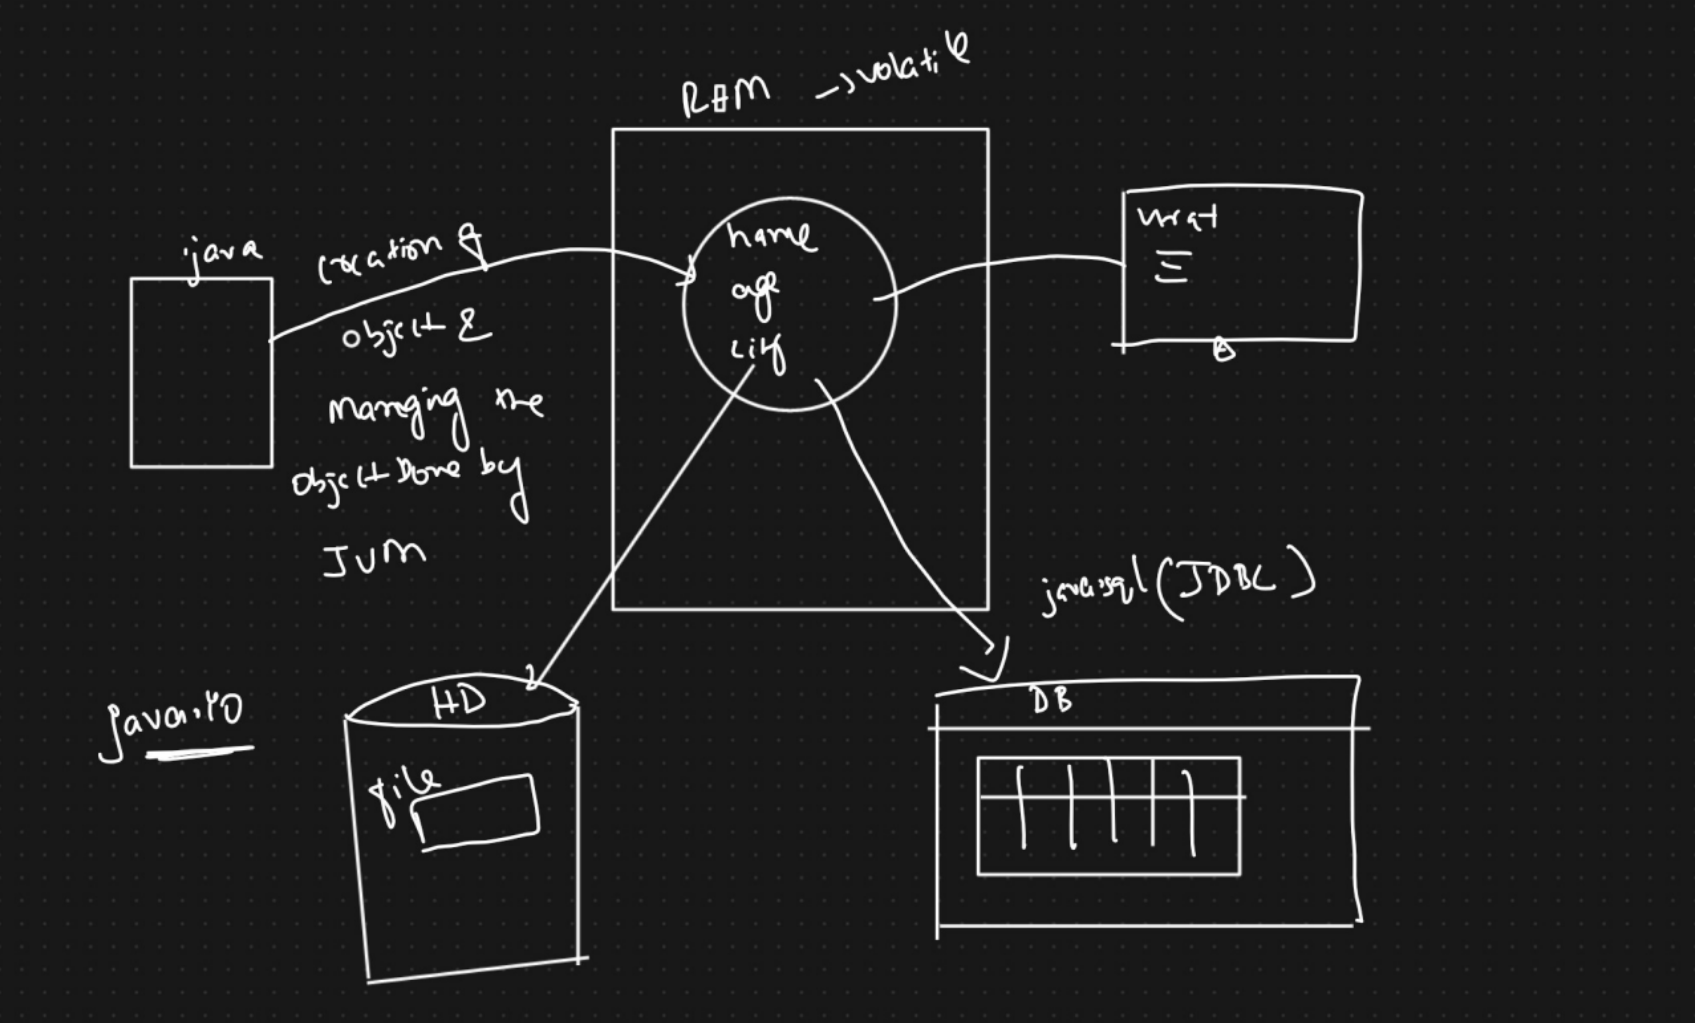 RAM → volatile
.java
creation of
object &
Managing the
object Done by
JVM
name
age
city
Virat
java.sql (JDBC)
java.io
HD
file
DB